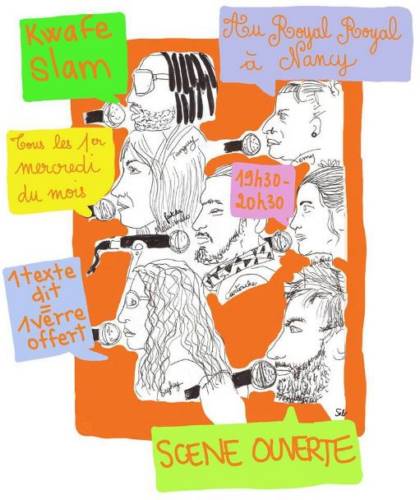 Kwafe
Slam
Au Royal Royal
à Nancy
Tous les 1er
mercredi
du mois
19h30-
20h30
1 texte
dit
=
1 verre
offert
SCENE OUVERTE